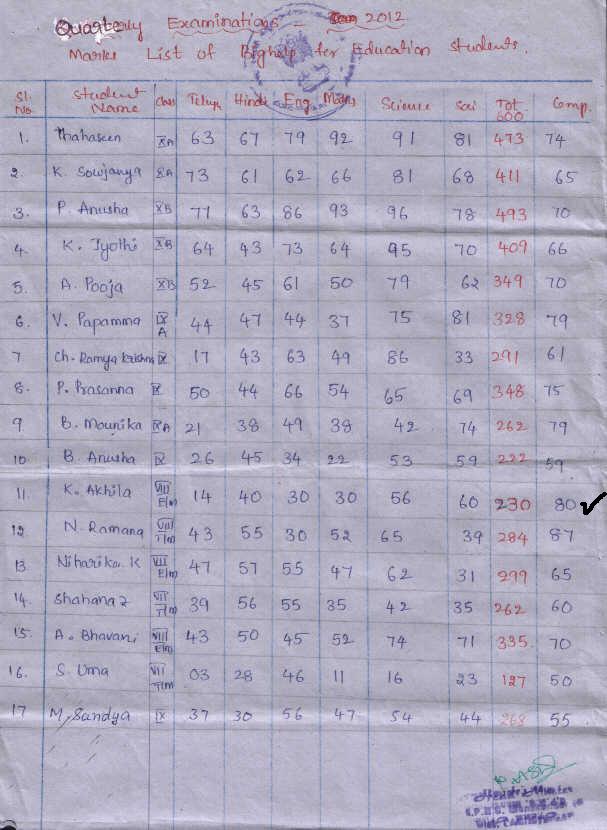 Quarterly Examinations - 2012
Marks List of Bighelp for Education Students.
Sl. No. Student Name Class Telugu Hindi Eng Maths Science Soi Tot 600 Comp.
1. Thahaseen XA 63 67 79 92 91 81 473 74
2. K. Sowjanya XA 73 61 62 66 81 68 411 65
3. P. Anusha XB 71 63 86 93 96 78 493 70
4. K. Jyothi XB 64 43 73 64 95 70 409 66
5. A. Pooja XB 52 45 61 50 79 62 349 70
6. V. Papamma IX A 44 47 44 37 75 81 328 79
7 Ch. Ramya Krishna IX 17 43 63 49 86 33 291 61
8. P. Prasanna IX 50 44 66 54 65 69 348 75
9 B. Mounika IXA 21 38 49 38 42 74 262 79
10 B. Anusha IX 26 45 34 22 53 59 222 59
11. K. Akhila VIII E/m 14 40 30 30 56 60 230 80 ✓
12 N. Ramana VIII T/m 43 55 30 52 65 39 284 87
13 Niharika. K VII E/m 47 57 55 47 62 31 299 65
14. Shahana z VII T/m 39 56 55 35 42 35 262 60
15. A. Bhavani VIII E/m 43 50 45 52 74 71 335. 70
16. S. Uma VII T/m 03 28 46 11 16 23 127 50
17 M. Sandya IX 37 30 56 47 54 44 268 55